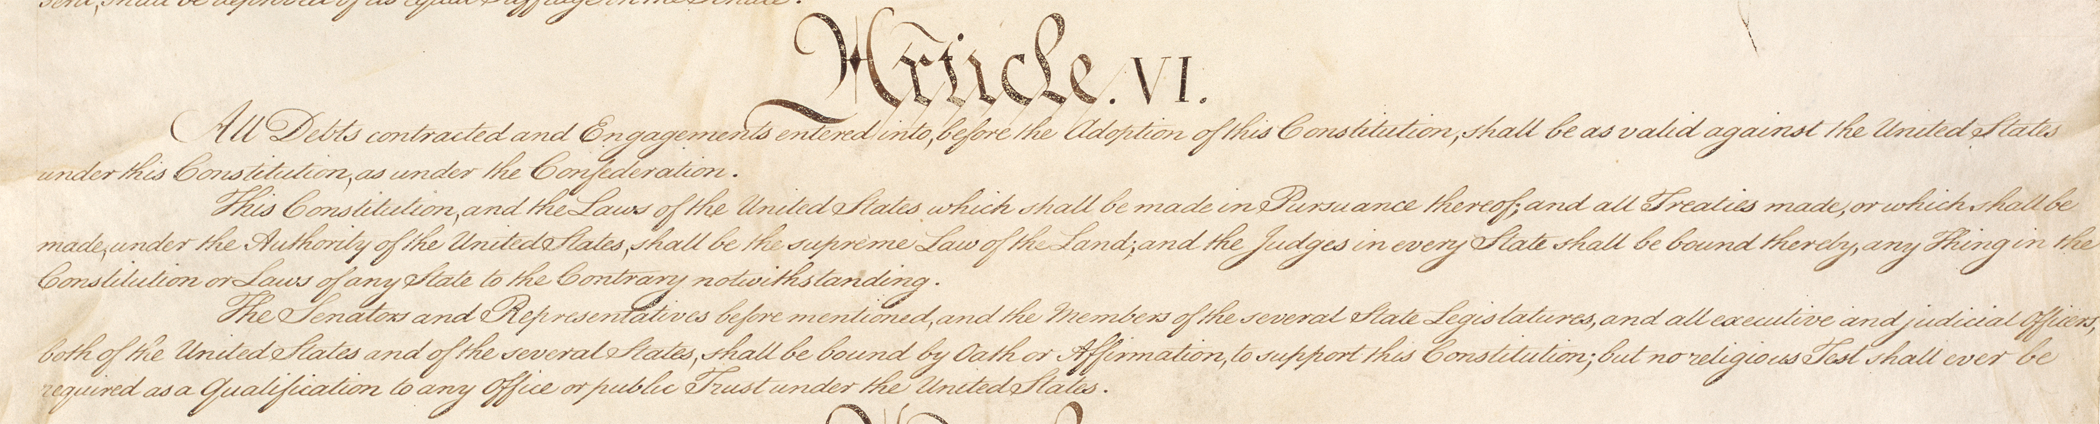 sent, shall be deprived of its equal Suffrage in the Senate.
Article. VI.
All Debts contracted and Engagements entered into, before the Adoption of this Constitution, shall be as valid against the United States
under this Constitution, as under the Confederation.
This Constitution, and the Laws of the United States which shall be made in Pursuance thereof; and all Treaties made, or which shall be
made, under the Authority of the United States, shall be the supreme Law of the Land; and the Judges in every State shall be bound thereby, any Thing in the
Constitution or Laws of any State to the Contrary notwithstanding.
The Senators and Representatives before mentioned, and the Members of the several State Legislatures, and all executive and judicial Officers,
both of the United States and of the several States, shall be bound by Oath or Affirmation, to support this Constitution; but no religious Test shall ever be
required as a Qualification to any Office or public Trust under the United States.